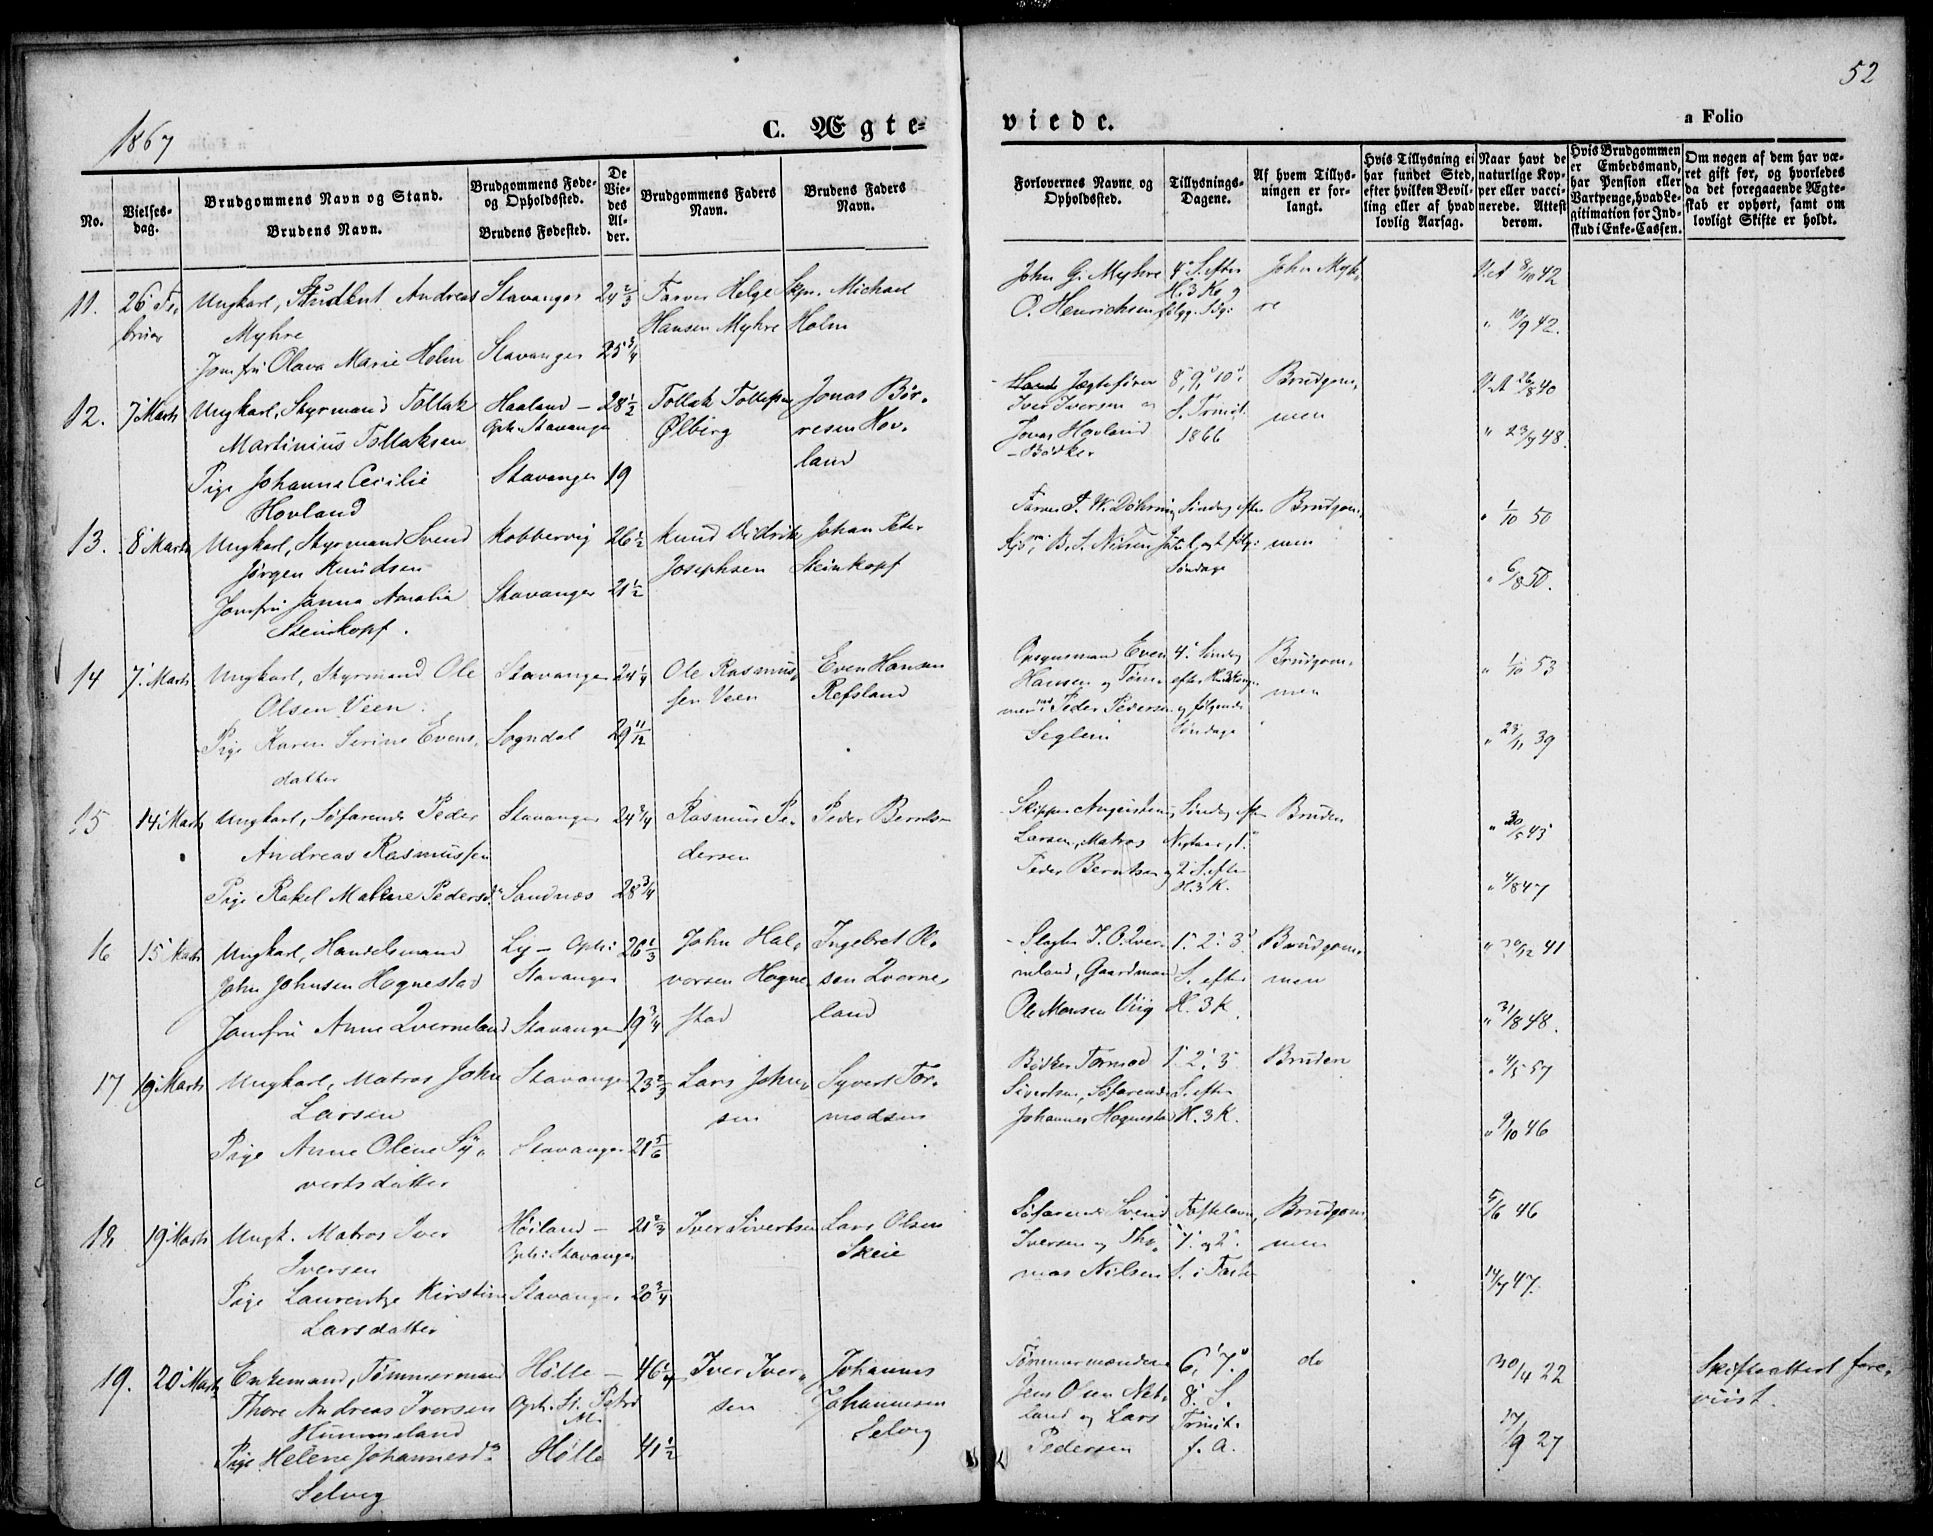 52
1867
C. Ægte-
viede.
a Folio
No.
Vielses-
dag.
Brudgommens Navn og Stand.
Brudens Navn.
Brudgommens Føde-
og Opholdssted.
Brudens Fødested.
De
Vie-
des
Al-
der.
Brudgommens Faders
Navn.
Brudens Faders
Navn.
Forlovernes Navne og
Opholdssted.
Tillysnings-
Dagene.
Af hvem Tillys-
ningen er for-
langt.
Hvis Tillysning ei
har fundet Sted,
efter hvilken Bevil-
ling eller af hvad
lovlig Aarsag.
Naar havt de
naturlige Kop-
per eller vacci-
nerede. Attest
derom.
Hvis Brudgommen
er Embedsmand,
har Pension eller
Vartpenge, hvad Le-
gitimation for Ind-
skud i Enke-Cassen.
Om nogen af dem har væ-
ret gift før, og hvorledes
da det foregaaende Ægte-
skab er ophørt, samt om
lovligt Skifte er holdt.
11.
26 Fe-
bruar
Ungkarl, Student Andreas
Myhre
Jomfru Olava Marie Holm
Stavanger
Stavanger
24 2/3
25 3/4
Farver Helge
Hansen Myhre
Skpr. Michael
Holm
John G. Myhre
O. Henrichsen
4de S. efter
H. 3 K. og
følg. Sdg:
John Myh-
re
V.A 8/10 42
" 10/9 42.
12.
7 Marts
Ungkarl, Styrmand Tollak
Martinius Tollaksen
Pige Johanne Cecilie
Hovland
Haaland -
Oph: Stavanger
Stavanger
28 1/2
19
Tollak Tollefsen
Ølberg
Jonas Bør-
resen Hov-
land
Jægtefører
Iver Iversen og
Jonas Hovland
- Bødker
8, 9, 10
S. Trinit.
1866
Brudgom-
men
V.A 26/8 40
" 23/9 48.
13.
8 Marts
Ungkarl, Styrmand Svend
Jørgen Knudsen
Jomfru Janna Amalia
Steinkopf.
Kobbervig
Stavanger
26 1/2
21 1/2
Knud Didrik
Josephsen
Johan Peter
Steinkopf
Farver P. W. Döhring
Kjøbm B. S. Nilsen
Søndag efter
Jul, og 2 følg:
Søndage
Brudgom-
men
" 1/10 50
" 6/8 50.
14
7 Marts
Ungkarl, Styrmand Ole
Olsen Veen.
Pige Karen Serine Evens-
datter
Stavanger
Sogndal
24 1/4
29 11/12
Ole Rasmus-
sen Veen
Even Hansen
Refsland
Opsynsmand Even
Hansen og Tøm-
merm Peder Pedersen
Seglem
4 Søndag
efter H. 3 Konger
og følgende
Søndage
Brudgom-
men
" 1/10 53
" 23/11 39
15
14 Marts
Ungkarl, Søfarende Peder
Andreas Rasmussen
Pige Rakel Malene Pedersd.
Stavanger
Sandnæs
24 3/4
28 3/4
Rasmus Pe-
dersen
Peder Berntsen
Skipper Augustinus
Larsen, Matros
Peder Berntsen
Søndag eft
Nytaar, 1
og 2 S. efter
H. 3 K.
Bruden
" 30/5 43
" 4/8 47
16
15 Marts
Ungkarl, Handelsmand
John Johnsen Hognestad
Jomfru Anne Qverneland
Ly - Oph:
Stavanger
Stavanger
26 2/3
19 3/4
John Hal-
vorsen Hogne-
stad
Ingebret Ol-
sen Qverne-
land
Slagter J. O. Qver-
neland, Gaardmand
Ole Monsen Viig
1. 2. 3
S. efter
H. 3 K.
Brudgom-
men
" 30/12 41
" 31/8 48.
17
19 Marts
Ungkarl, Matros John
Larsen
Pige Anne Olene Sy-
vertsdatter
Stavanger
Stavanger
23 2/3
21 5/6
Lars John-
sen
Syvert Tor-
modsen
Bødker Tormod
Sivertsen, Søfarende
Johannes Hognestad
1. 2. 3
S. efter
H. 3 K.
Bruden
" 4/5 57
" 9/10 46
18.
19 Marts
Ungk. Matros Iver
Iversen
Pige Laurentze Kirstine
Larsdatter
Høiland -
Oph: Stavanger
Stavanger
21 2/3
20 3/4
Iver Sivertsen
Lars Olsen
Skeie
Søfarende Svend
Iversen og Tho-
mas Nilsen
Fastelavn,
1. og 2.
S. i Faste
Brudgom-
men
5/6 46
14/7 47.
19.
20 Marts
Enkemand, Tømmermand
Thore Andreas Iversen
Hummeland
Pige Helene Johannesd.
Selvig
Hølle -
Oph: St. Petri
M.
Hølle
46 1/4
41 1/2
Iver Iver-
sen
Johannes
Johannesen
Selvig
Tømmermændene
Jens Olsen Net-
land og Lars
Pedersen
6, 7.
8. S.
Trinit.
f. A.
do
30/4 22
17/9 27
Skifteattest fore-
viist.